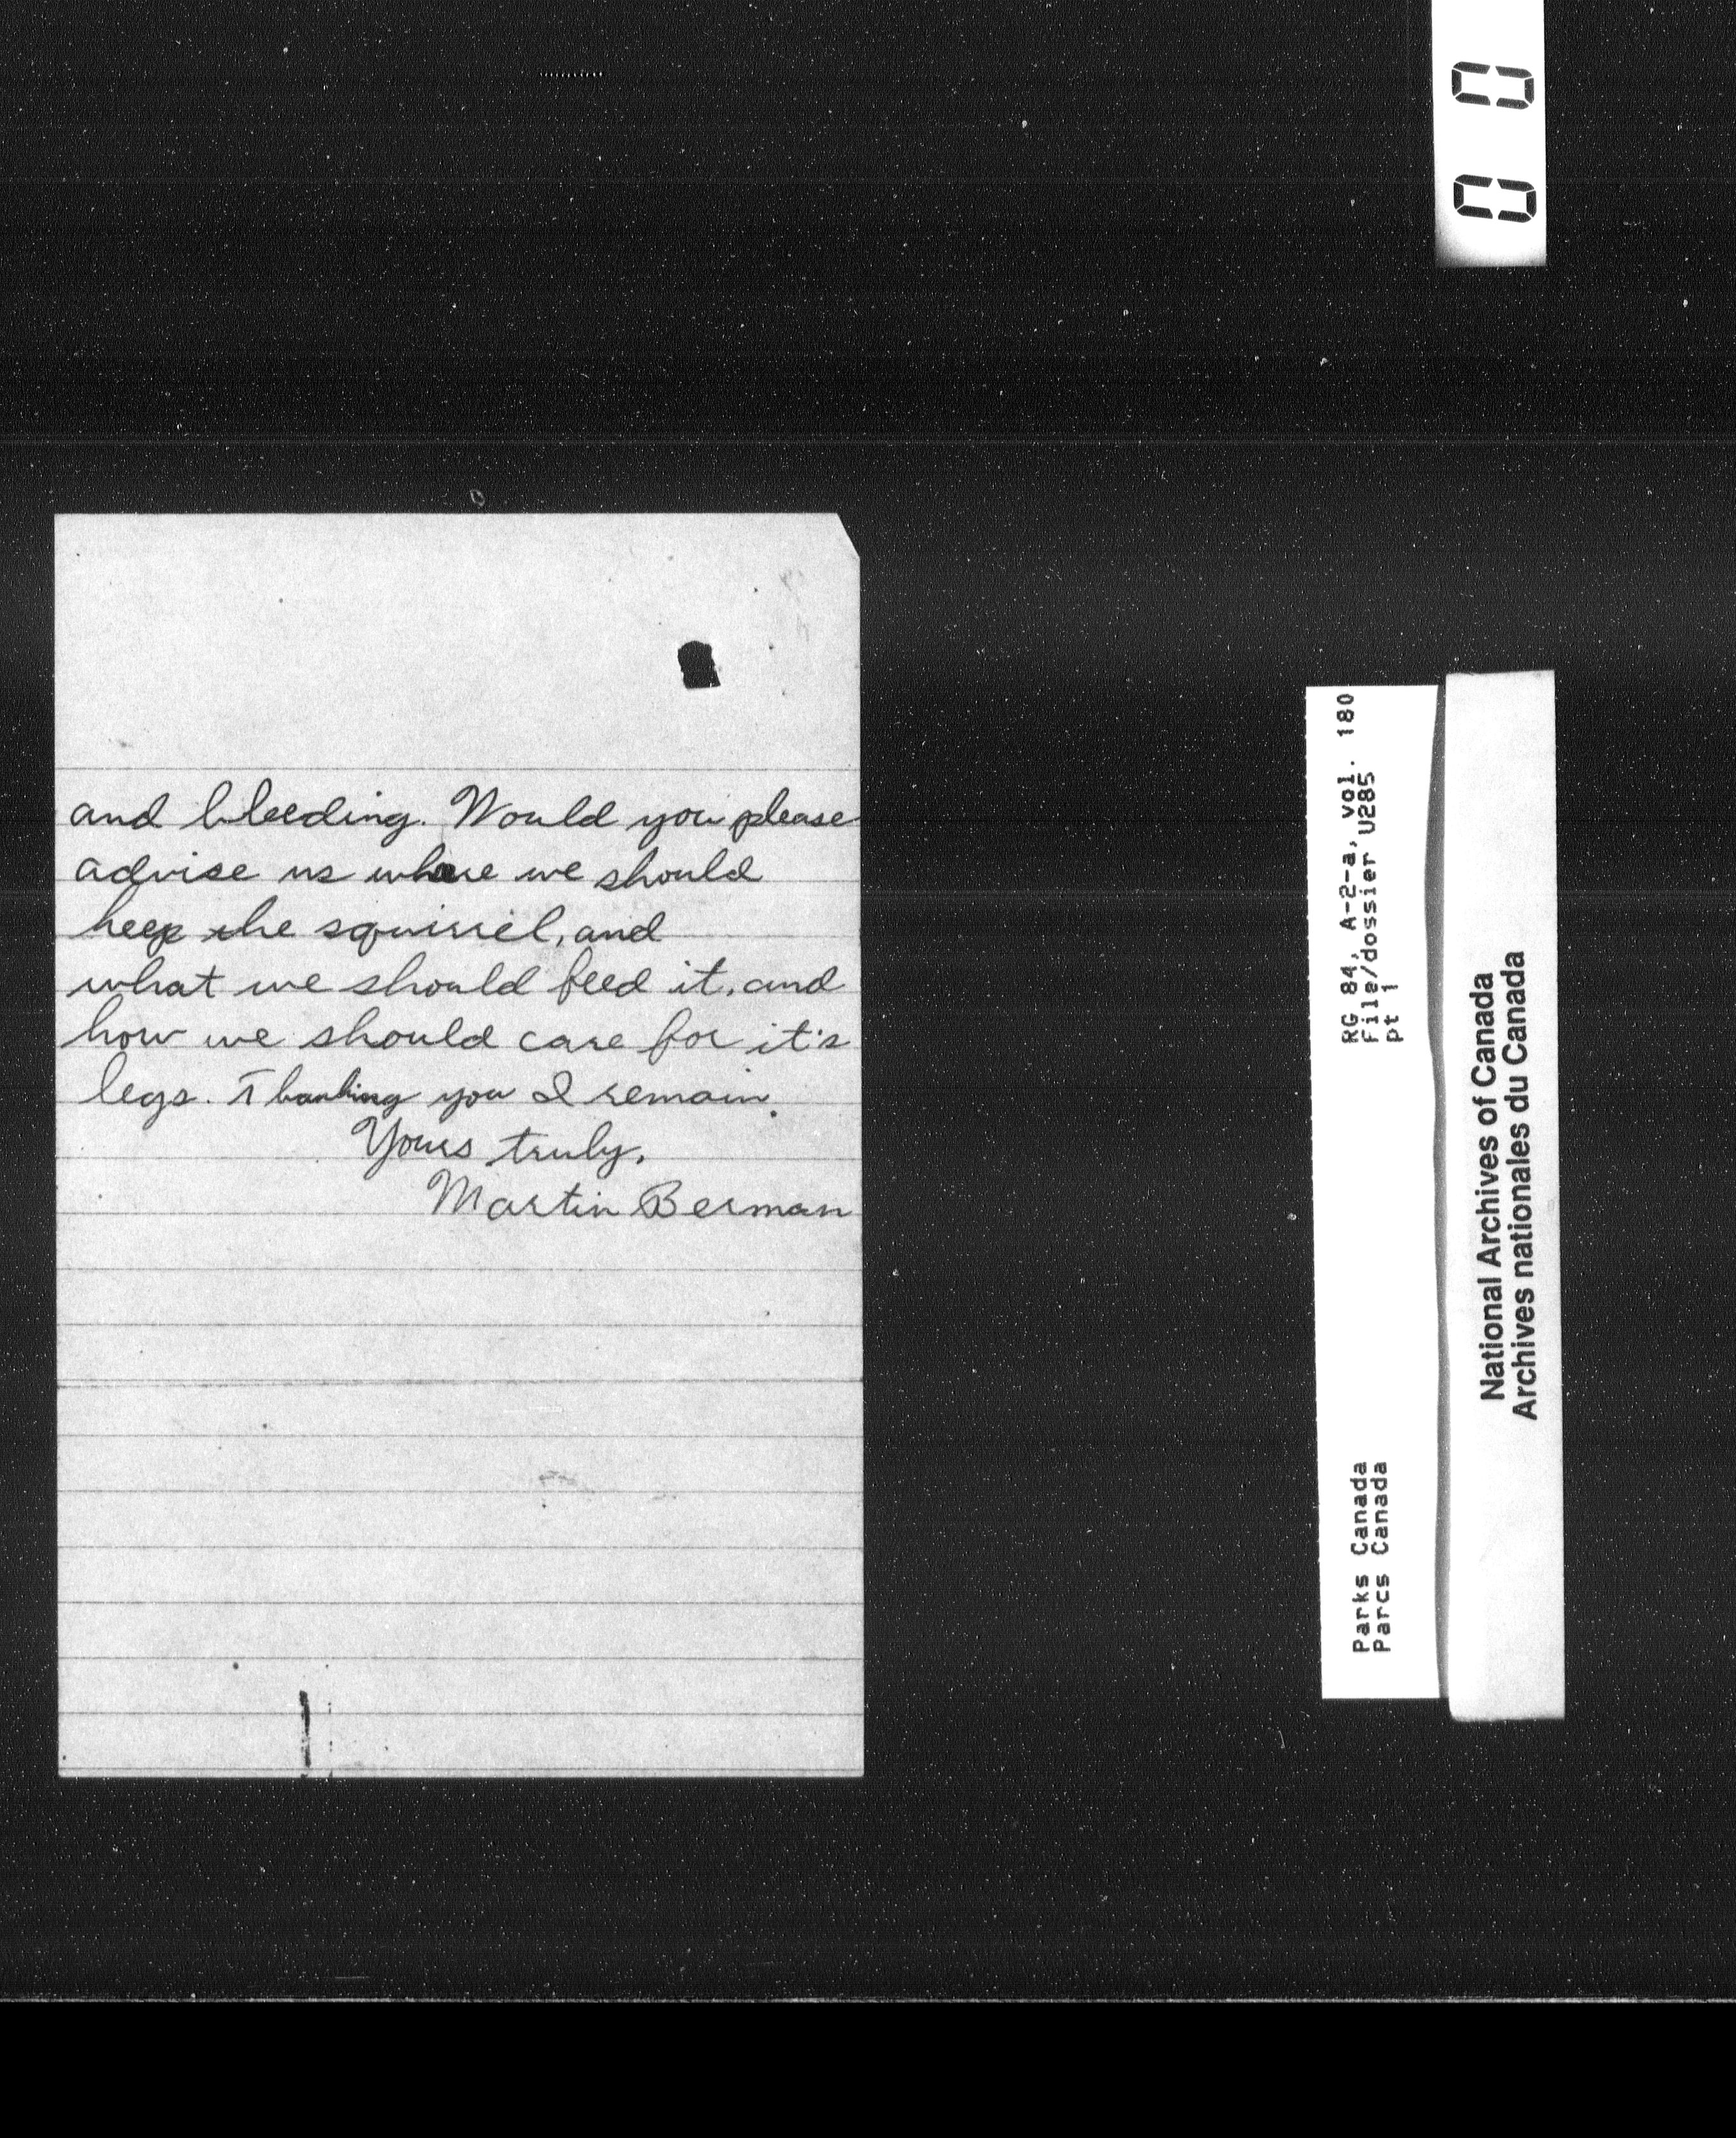 and bleeding. Would you please
advise us where we should
keep the squirrel, and
what we should feed it, and
how we should care for it's
legs. Thanking you I remain.
Yours truly,
Martin Berman
RG 84, A-2-a, vol. 180
File/dossier U285
pt 1
Parks Canada
Parcs Canada
National Archives of Canada
Archives nationales du Canada